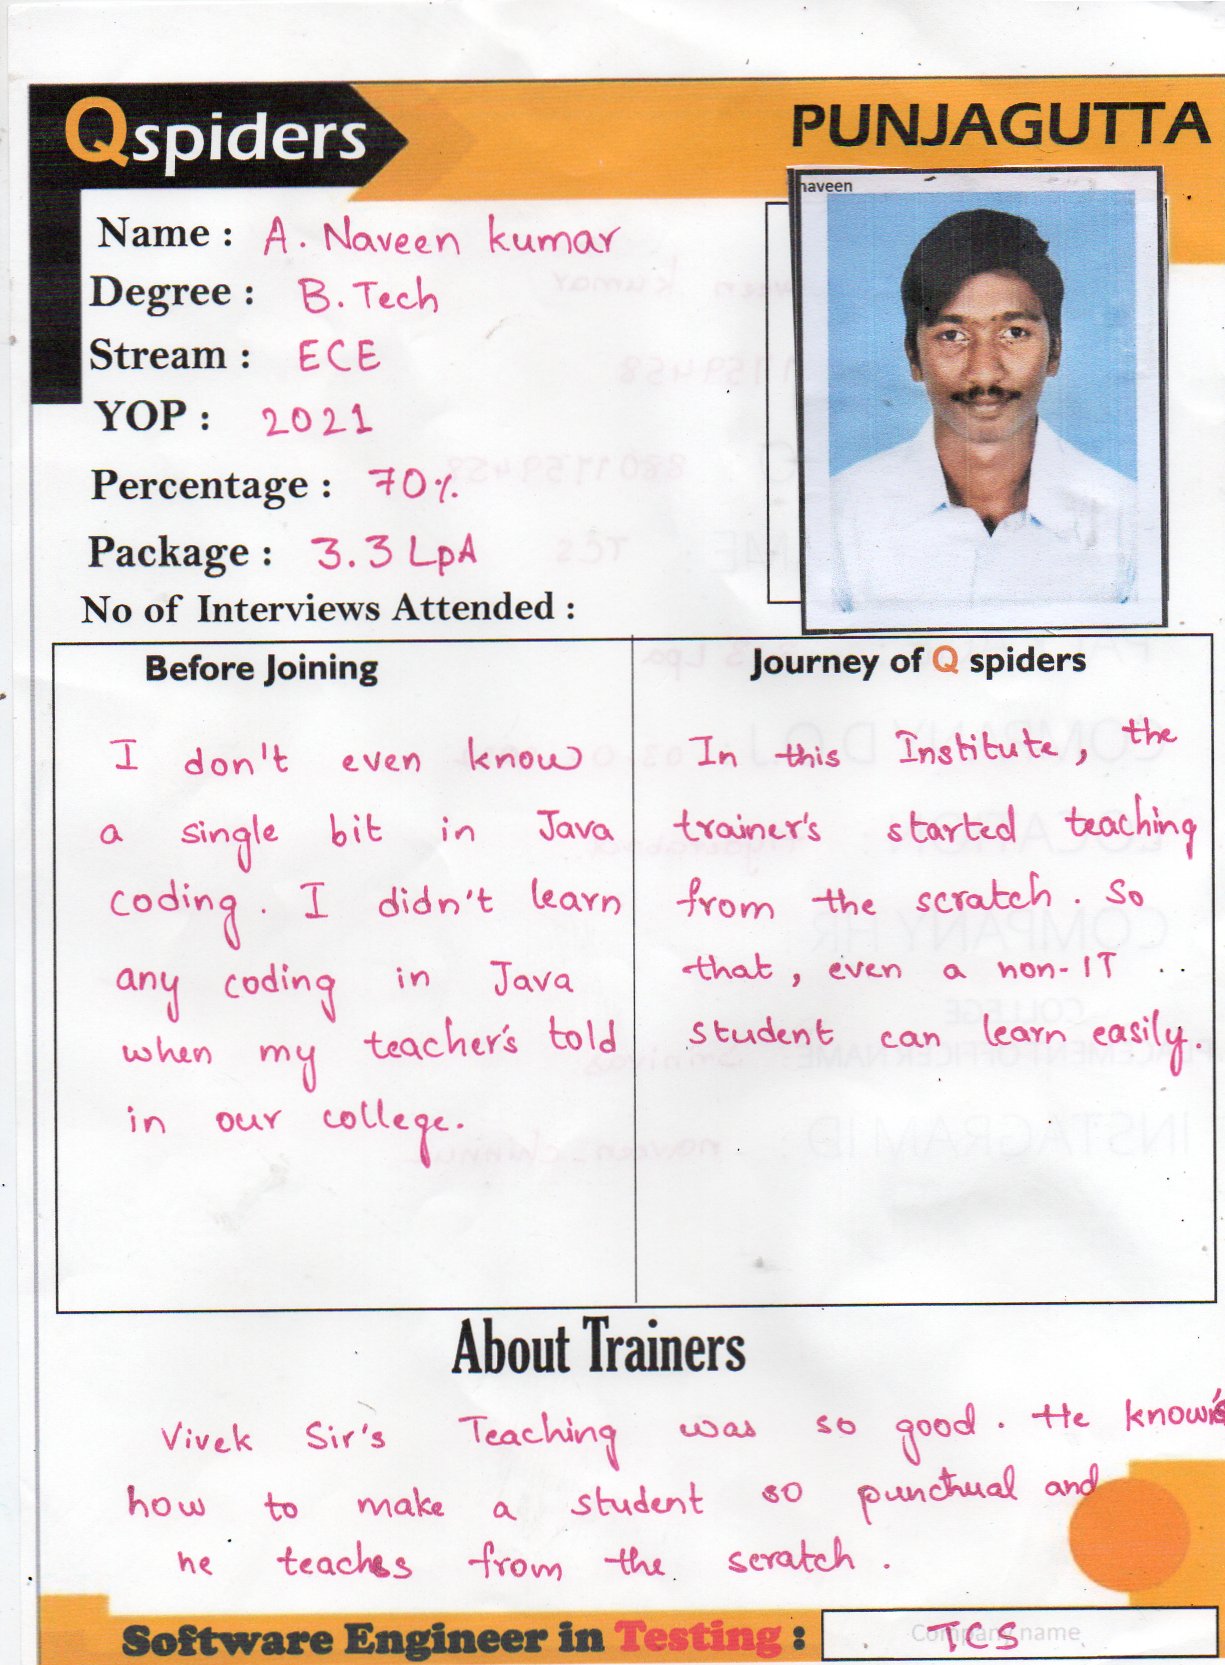 Qspiders
PUNJAGUTTA
naveen
Name : A. Naveen kumar
Degree : B.Tech
Stream : ECE
YOP : 2021
Percentage : 70%
Package : 3.3 LpA
No of Interviews Attended :
Before Joining
I don't even know
a single bit in Java
coding. I didn't learn
any coding in Java
when my teacher's told
in our college.
Journey of Q spiders
In this Institute, the
trainer's started teaching
from the scratch. So
that, even a non-IT
student can learn easily.
About Trainers
Vivek Sir's Teaching was so good. He
how to make a student so punctual and
he teaches from the scratch.
Software Engineer in Testing :
Company name
TCS